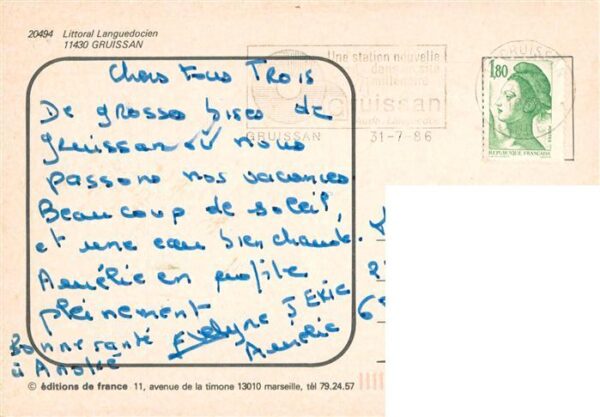 20494 Littoral Languedocien
11430 GRUISSAN
Chers Tous Trois
De grosses bises de
gruissan où nous
passons nos vacances.
Beaucoup de soleil,
et une eau bien chaude.
Amélie en profite
pleinement
Evelyne J ERIC
Amélie
Bonne santé
à André
Une station nouvelle
dans un site
millénaire
gruissan
GRUISSAN 31-7-86
GRUISSAN
1,80
REPUBLIQUE FRANÇAISE
© éditions de france 11, avenue de la timone 13010 marseille, tél 79.24.57